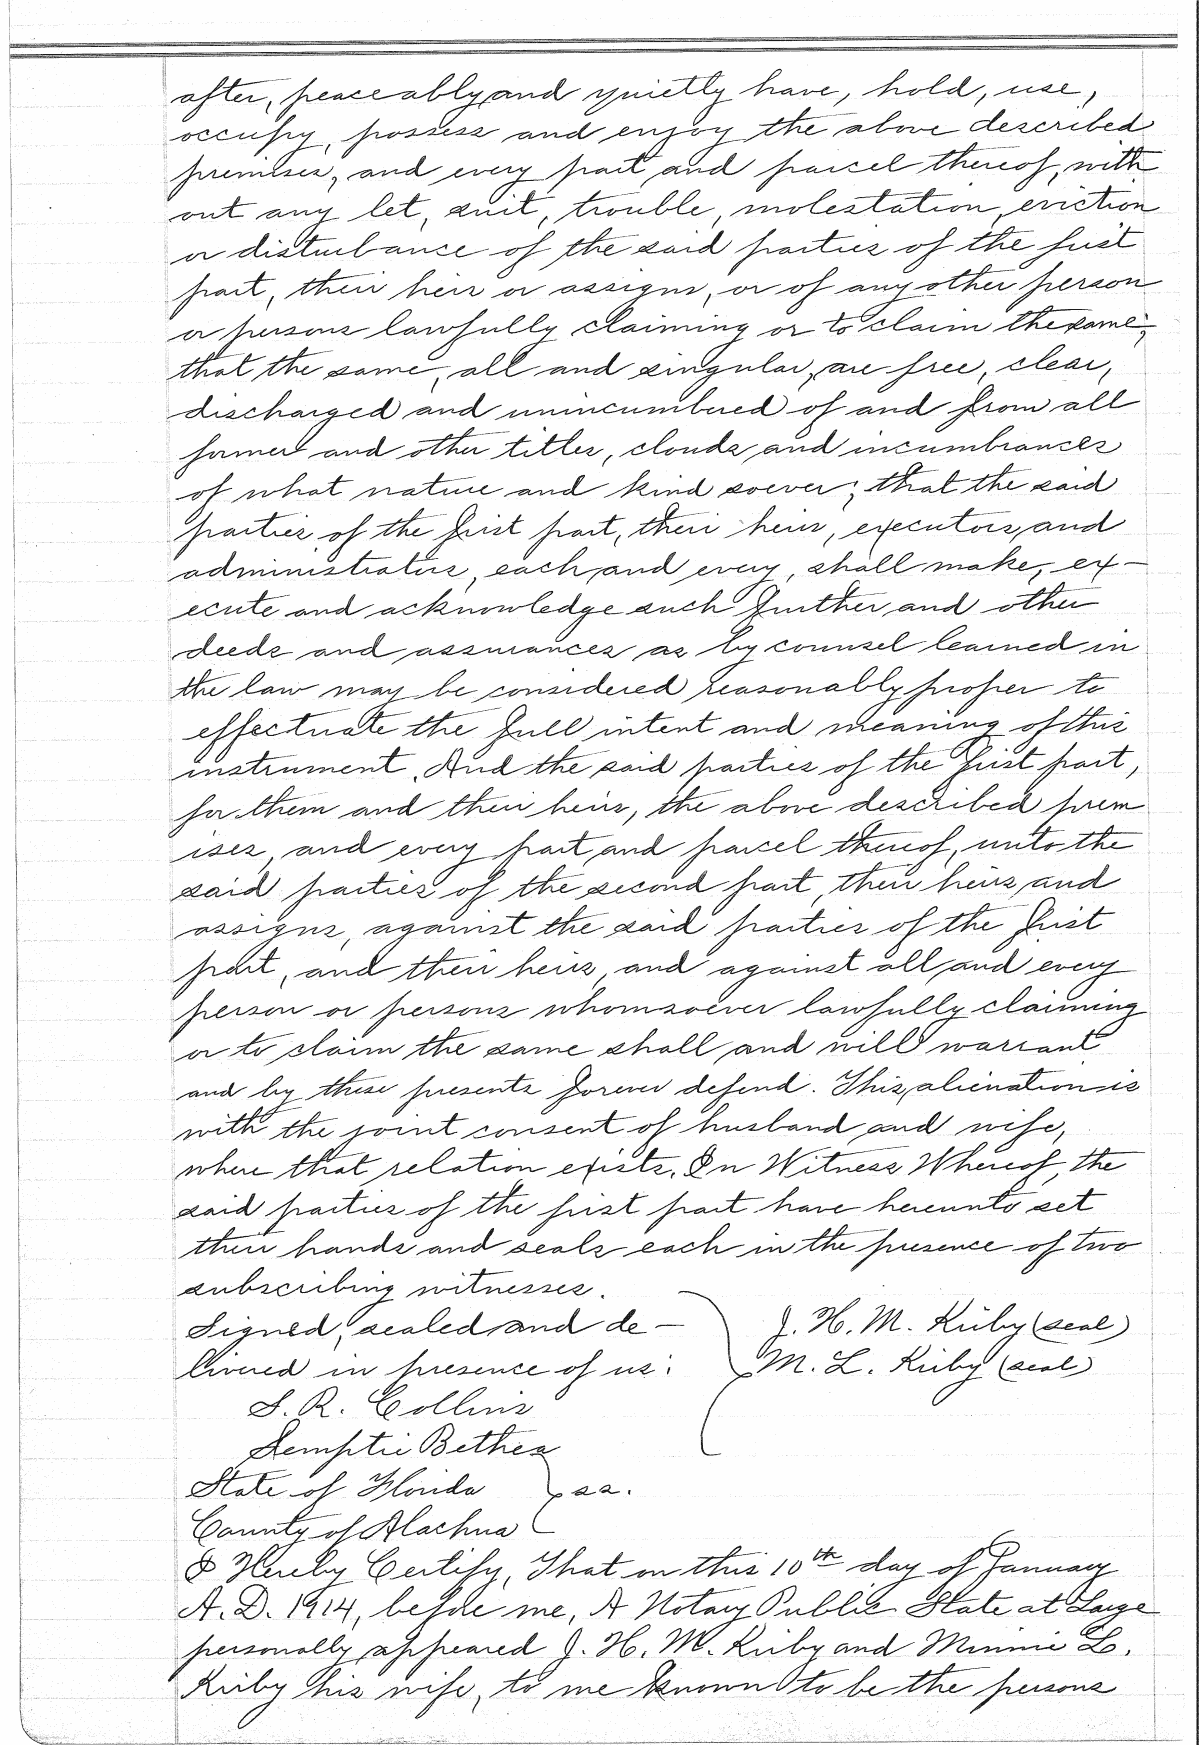 after, peaceably and quietly have, hold, use,
occupy, possess and enjoy the above described
premises, and every part and parcel thereof, with
out any let, suit, trouble, molestation, eviction
or disturbance of the said parties of the first
part, their heir or assigns, or of any other person
or persons lawfully claiming or to claim the same;
that the same, all and singular, are free, clear,
discharged and unincumbered of and from all
former and other titles, clouds and incumbrances
of what nature and kind soever; that the said
parties of the first part, their heirs, executors, and
administrators, each and every, shall make, ex-
ecute and acknowledge such further and other
deeds and assurances as by counsel learned in
the law may be considered reasonably proper to
effectuate the full intent and meaning of this
instrument. And the said parties of the first part,
for them and their heirs, the above described prem
ises, and every part and parcel thereof, unto the
said parties of the second part, their heirs, and
assigns, against the said parties of the first
part, and their heirs, and against all and every
person or persons whomsoever lawfully claiming
or to claim the same shall and will warrant
and by these presents forever defend. This alienation is
with the joint consent of husband and wife,
where that relation exists. In Witness Whereof, the
said parties of the first part have hereunto set
their hands and seals each in the presence of two
subscribing witnesses.
Signed, sealed and de- J. H. M. Kirby (seal)
livered in presence of us: M. L. Kirby (seal)
S. R. Collins
Semptie Bethea
State of Florida ss.
County of Alachua
I Hereby Certify, That on this 10th day of January
A. D. 1914, before me, A Notary Public State at Large
personally appeared J. H. M. Kirby and Minnie L.
Kirby his wife, to me known to be the persons